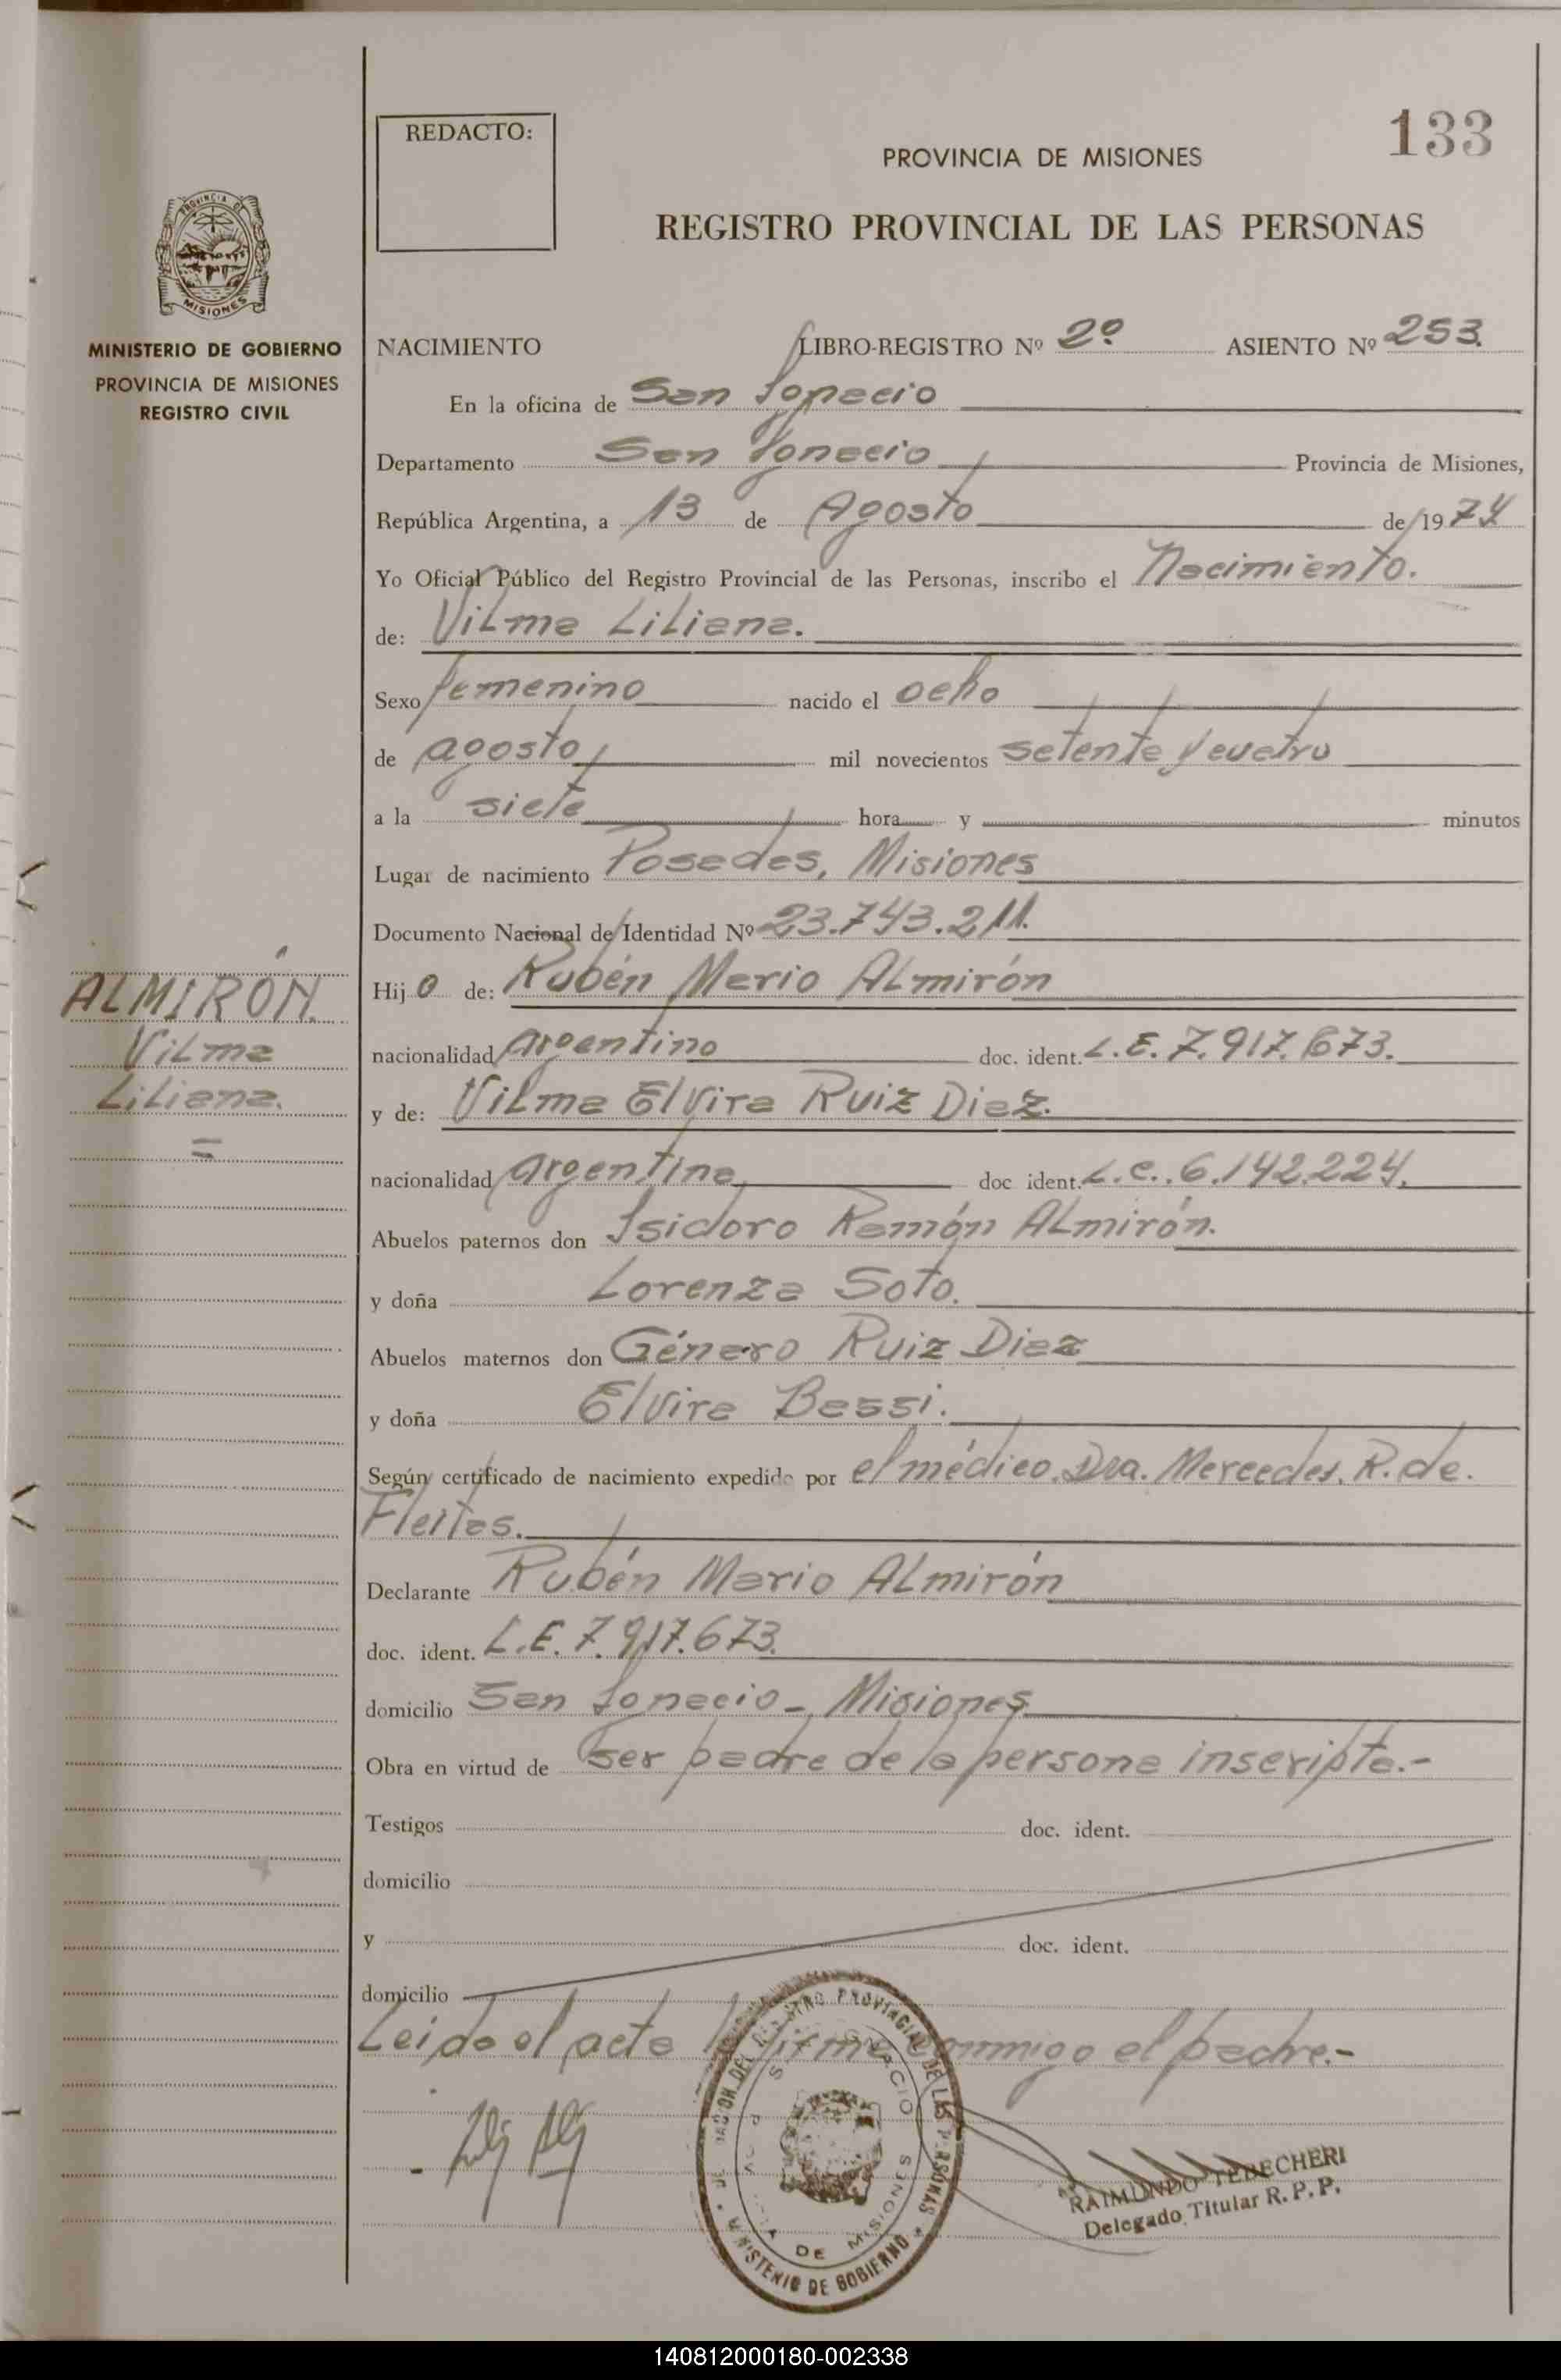 133
REDACTO:
PROVINCIA DE MISIONES
REGISTRO PROVINCIAL DE LAS PERSONAS
PROVINCIA DE
MISIONES
MINISTERIO DE GOBIERNO
PROVINCIA DE MISIONES
REGISTRO CIVIL
NACIMIENTO LIBRO-REGISTRO Nº 2º ASIENTO Nº 253.
En la oficina de San Ignacio
Departamento San Ignacio Provincia de Misiones,
República Argentina, a 13 de Agosto de 1974
Yo Oficial Público del Registro Provincial de las Personas, inscribo el Nacimiento.
de: Vilma Liliana.
Sexo femenino nacido el ocho
de agosto mil novecientos setenta y cuatro
a la siete hora y minutos
Lugar de nacimiento Posadas, Misiones
Documento Nacional de Identidad Nº 23.743.211.
Hijo de: Rubén Mario Almirón
ALMIRÓN.
Vilma
Liliana.
nacionalidad Argentino doc. ident. L.E. 7.917.673.
y de: Vilma Elvira Ruiz Diaz.
nacionalidad Argentina doc ident. L.C. 6.142.224.
Abuelos paternos don Isidoro Ramón Almirón.
y doña Lorenza Soto.
Abuelos maternos don Género Ruiz Diaz
y doña Elvira Bessi.
Según certificado de nacimiento expedido por el médico. Dra. Mercedes. R. de.
Fleitas.
Declarante Rubén Mario Almirón
doc. ident. L.E. 7.917.673.
domicilio San Ignacio-, Misiones
Obra en virtud de ser padre de la persona inscripta.-
Testigos doc. ident.
domicilio
y doc. ident.
domicilio
Leido el acta la firma conmigo el padre.-
REGISTRO PROVINCIAL DE LAS PERSONAS
MINISTERIO DE GOBIERNO
DE MISIONES
RAIMUNDO TEBECHERI
Delegado Titular R. P. P.
140812000180-002338